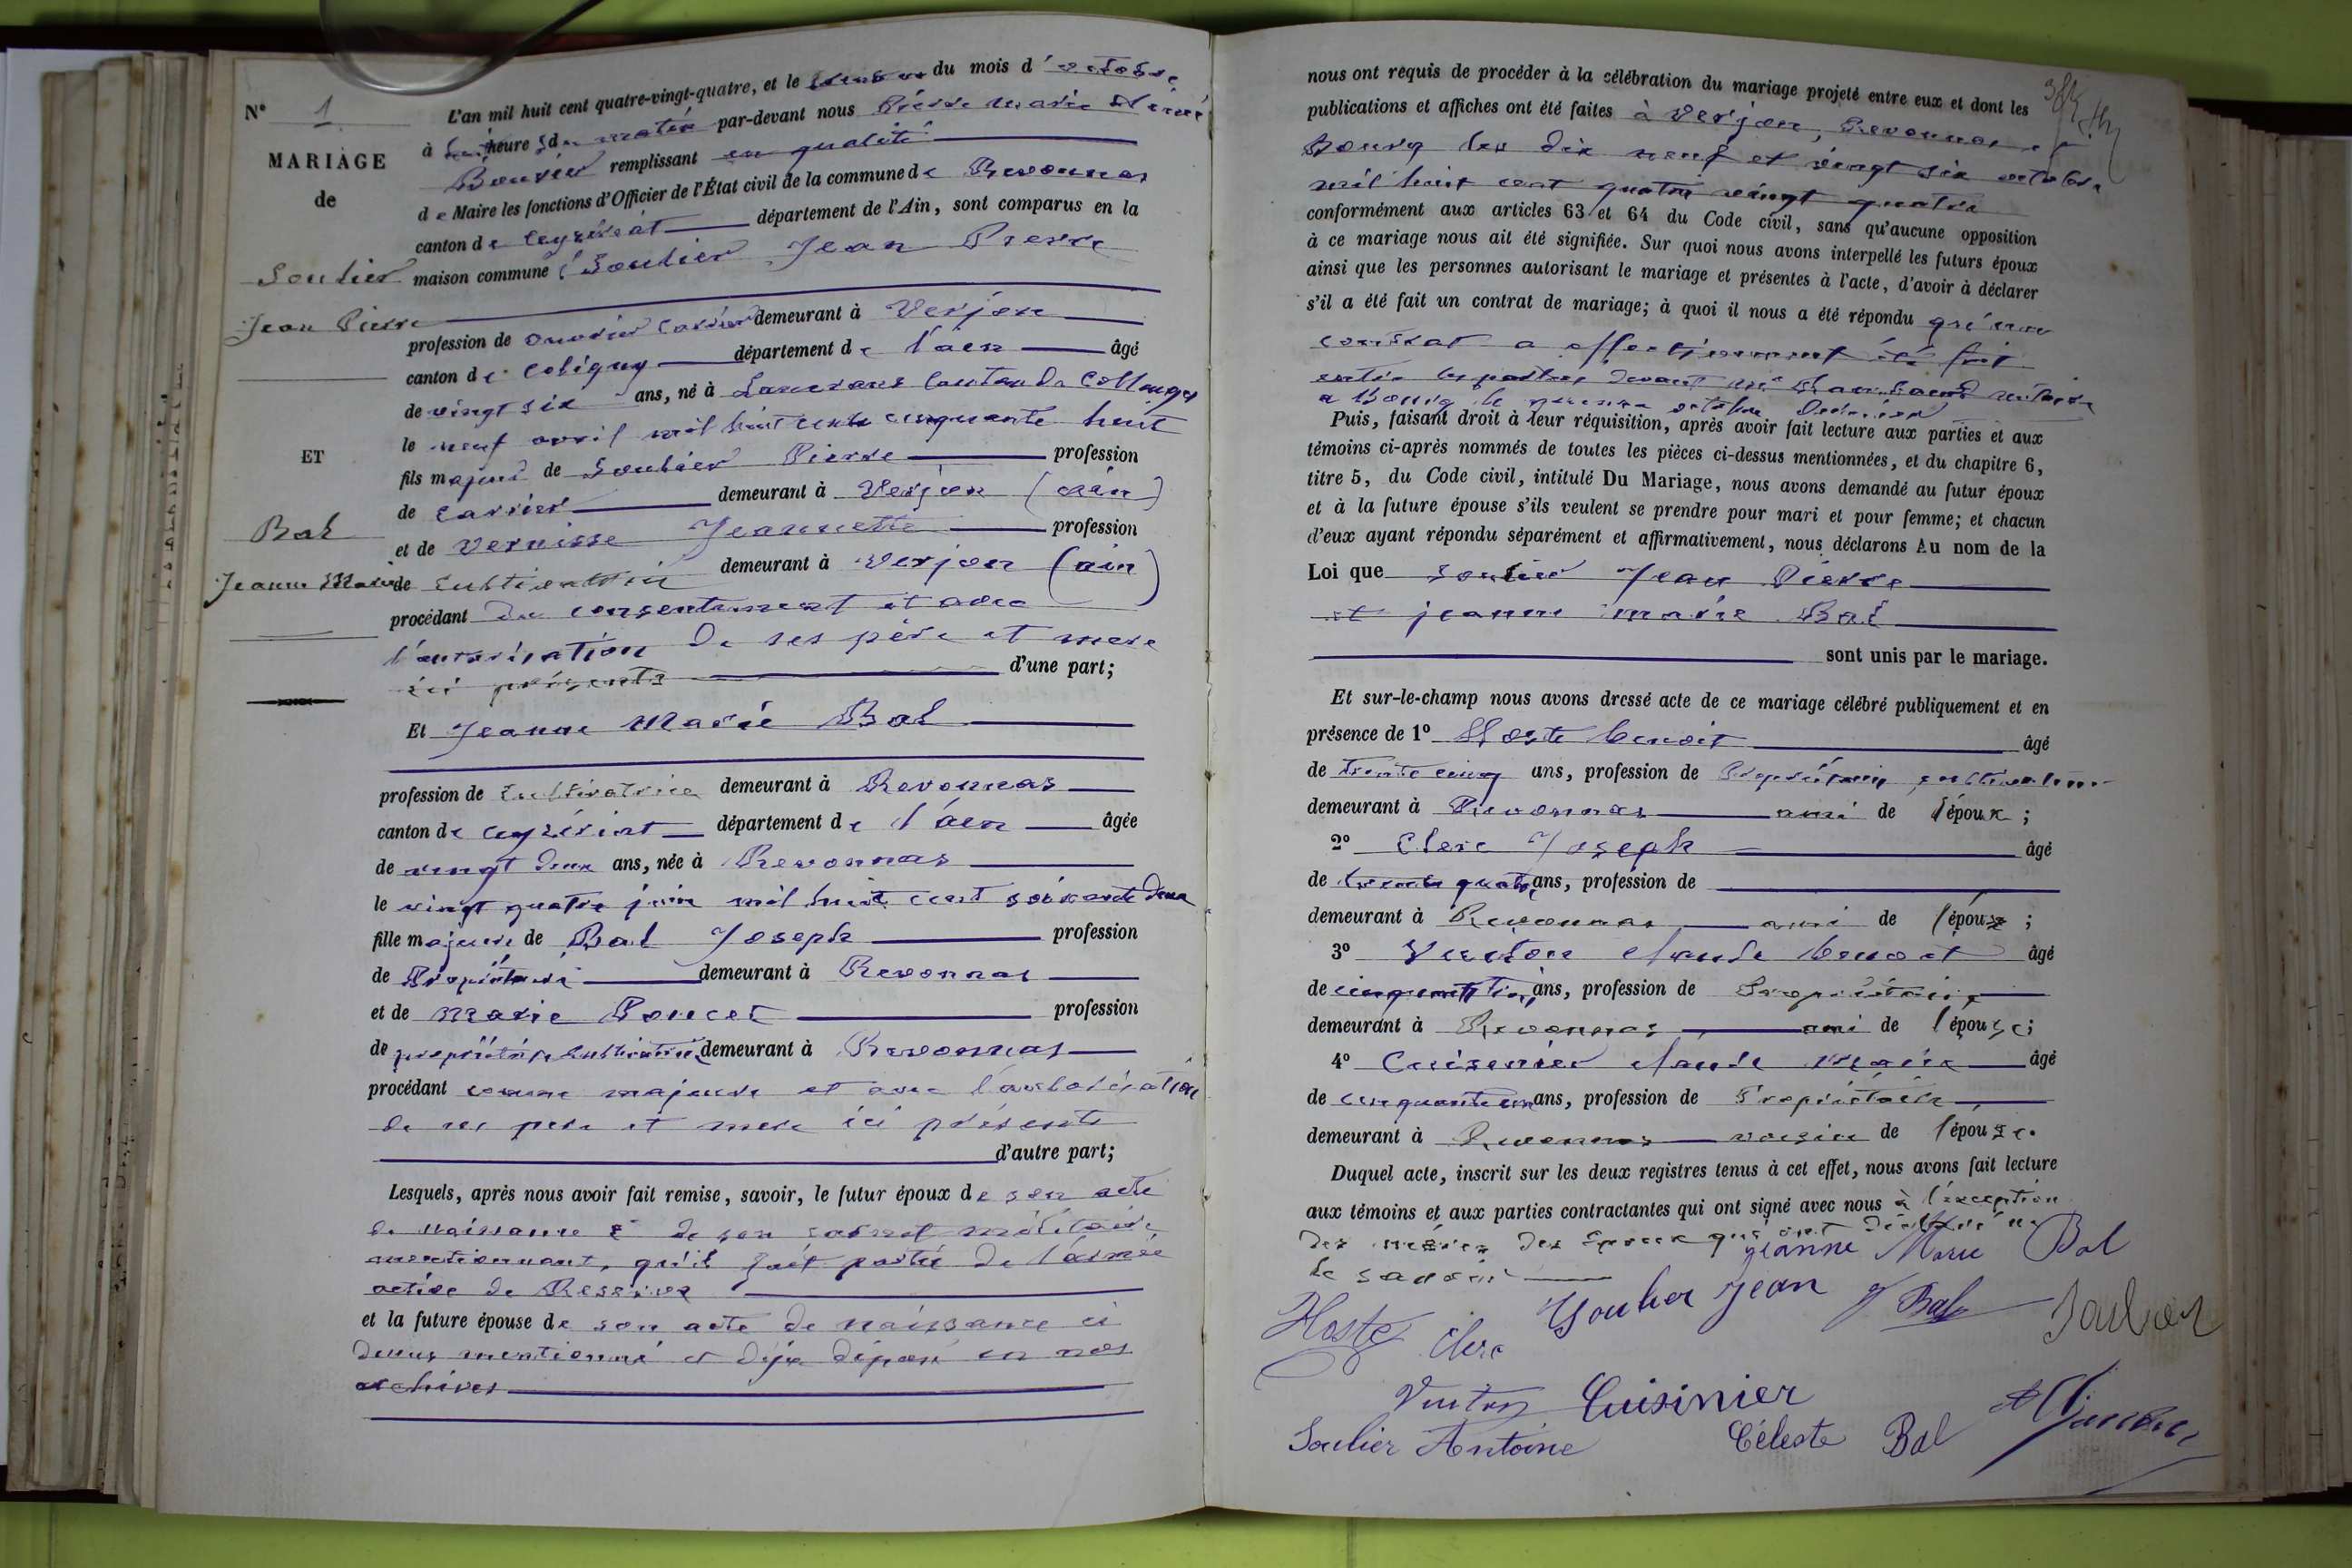 N° 1
MARIAGE
de
Soulier
Jean Pierre
ET
Bal
Jeanne Marie
L'an mil huit cent quatre-vingt-quatre, et le du mois d'octobre
à heure du matin par-devant nous Pierre Marie Aimé
Bouvier remplissant en qualité
de Maire les fonctions d'Officier de l'État civil de la commune de Revonnas
canton de Ceyzériat département de l'Ain, sont comparus en la
maison commune Soulier Jean Pierre
profession de ouvrier carrier demeurant à Verjon
canton de Coligny département de l'ain âgé
de vingt six ans, né à Lancrans Canton de Collonges
le neuf avril mil huit cent cinquante huit
fils majeur de Soulier Pierre profession
de carrier demeurant à Verjon (ain)
et de Vernisse Jeannette profession
de cultivatrice demeurant à Verjon (ain)
procédant du consentement et avec
l'autorisation de ses père et mere
ici présents d'une part;
Et Jeanne Marie Bal
profession de Cultivatrice demeurant à Revonnas
canton de ceyzériat département de l'ain âgée
de vingt deux ans, née à Revonnas
le vingt quatre juin mil huit cent soixante deux
fille majeure de Bal Joseph profession
de Propriétaire demeurant à Revonnas
et de Marie Poncet profession
de propriétaire cultivatrice demeurant à Revonnas
procédant comme majeure et avec l'authorisation
de ses pere et mere ici présents
d'autre part;
Lesquels, après nous avoir fait remise, savoir, le futur époux de son acte
de naissance & de son livret militaire
mentionnant, qu'il fait partie de l'armée
active de Reserve
et la future épouse de son acte de naissance ci
dessus mentionné et déja déposé en nos
archives
nous ont requis de procéder à la célébration du mariage projeté entre eux et dont les
publications et affiches ont été faites à Verjon, Revonnas et
Bourg les dix neuf et vingt six octobre
mil huit cent quatre vingt quatre
conformément aux articles 63 et 64 du Code civil, sans qu'aucune opposition
à ce mariage nous ait été signifiée. Sur quoi nous avons interpellé les futurs époux
ainsi que les personnes autorisant le mariage et présentes à l'acte, d'avoir à déclarer
s'il a été fait un contrat de mariage; à quoi il nous a été répondu qu'un
contrat a effectivement été fait
entre les parties devant notaire
a Bourg le octobre dernier
Puis, faisant droit à leur réquisition, après avoir fait lecture aux parties et aux
témoins ci-après nommés de toutes les pièces ci-dessus mentionnées, et du chapitre 6,
titre 5, du Code civil, intitulé Du Mariage, nous avons demandé au futur époux
et à la future épouse s'ils veulent se prendre pour mari et pour femme; et chacun
d'eux ayant répondu séparément et affirmativement, nous déclarons Au nom de la
Loi que Soulier Jean Pierre
et jeanne marie Bal
sont unis par le mariage.
Et sur-le-champ nous avons dressé acte de ce mariage célébré publiquement et en
présence de 1° Hoste benoit âgé
de trente cinq ans, profession de Propriétaire cultivateur
demeurant à Revonnas ami de l'époux;
2° Clerc Joseph âgé
de trente quatre ans, profession de
demeurant à Revonnas ami de l'époux;
3° Vuiton claude benoit âgé
de ans, profession de Propriétaire
demeurant à Revonnas ami de l'épouse;
4° Cuisinier claude marie âgé
de cinquante un ans, profession de Propriétaire
demeurant à Revonnas voisin de l'épouse.
Duquel acte, inscrit sur les deux registres tenus à cet effet, nous avons fait lecture
aux témoins et aux parties contractantes qui ont signé avec nous à l'exception
des mères des époux qui ont déclaré ne
le savoir
jeanne Marie Bal
Hoste Clerc Soulier jean J Bal Soulier
Vuiton Cuisinier
Soulier Antoine Céleste Bal